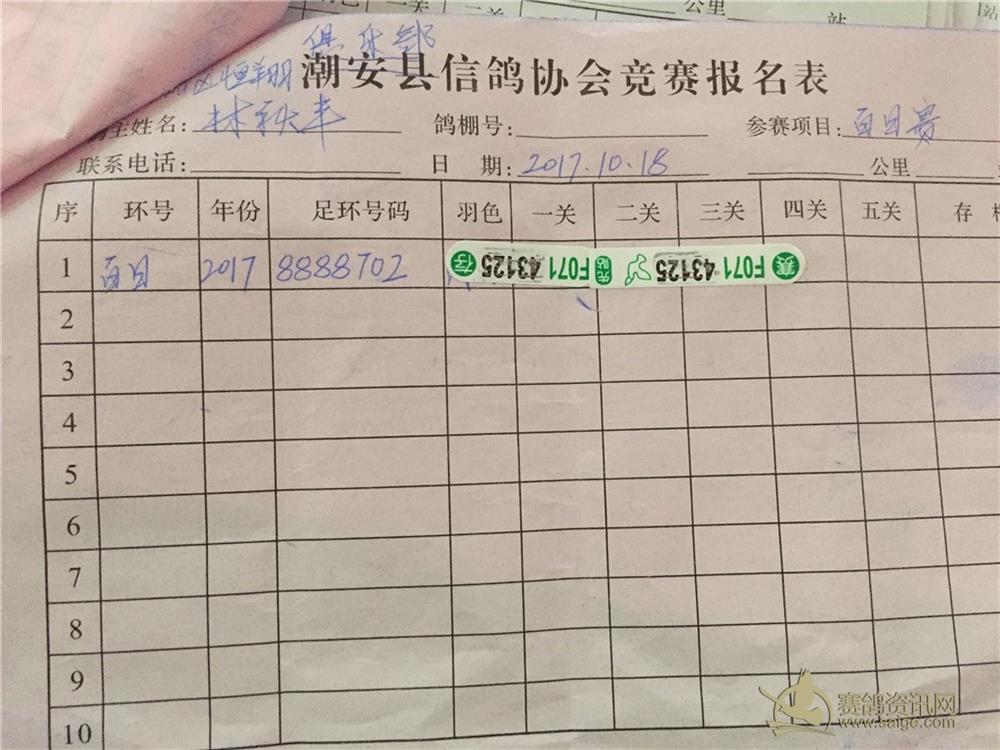 公里
站
俱乐部
区恒翔 潮安县信鸽协会竞赛报名表
主姓名: 林秋丰 鸽棚号: 参赛项目: 百日赛
联系电话: 日 期: 2017.10.18 公里
序 环号 年份 足环号码 羽色 一关 二关 三关 四关 五关 存
1 百日 2017 8888702 存 43125 F071 先贴 43125 F071 赛
2
3
4
5
6
7
8
9
10
赛鸽资讯网
www.saige.com